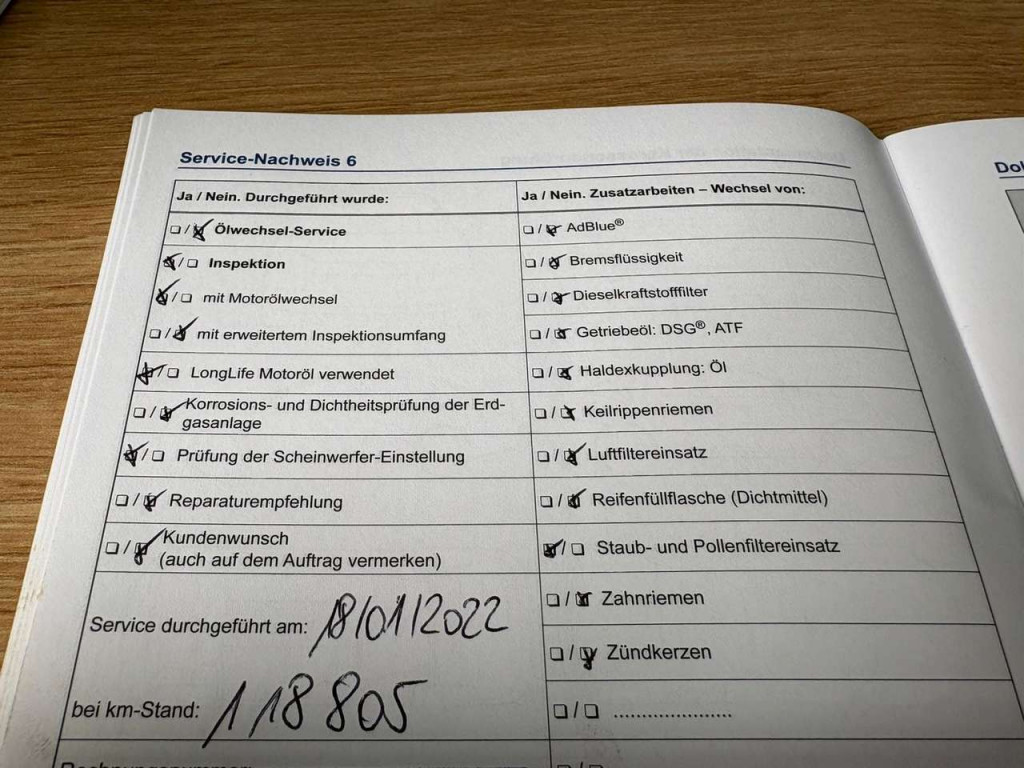 Service-Nachweis 6
Ja / Nein. Durchgeführt wurde:
Ölwechsel-Service
Inspektion
mit Motorölwechsel
mit erweitertem Inspektionsumfang
LongLife Motoröl verwendet
Korrosions- und Dichtheitsprüfung der Erd-
gasanlage
Prüfung der Scheinwerfer-Einstellung
Reparaturempfehlung
Kundenwunsch
(auch auf dem Auftrag vermerken)
Service durchgeführt am: 18/01/2022
bei km-Stand: 118 805
Ja / Nein. Zusatzarbeiten – Wechsel von:
AdBlue®
Bremsflüssigkeit
Dieselkraftstofffilter
Getriebeöl: DSG®, ATF
Haldexkupplung: Öl
Keilrippenriemen
Luftfiltereinsatz
Reifenfüllflasche (Dichtmittel)
Staub- und Pollenfiltereinsatz
Zahnriemen
Zündkerzen